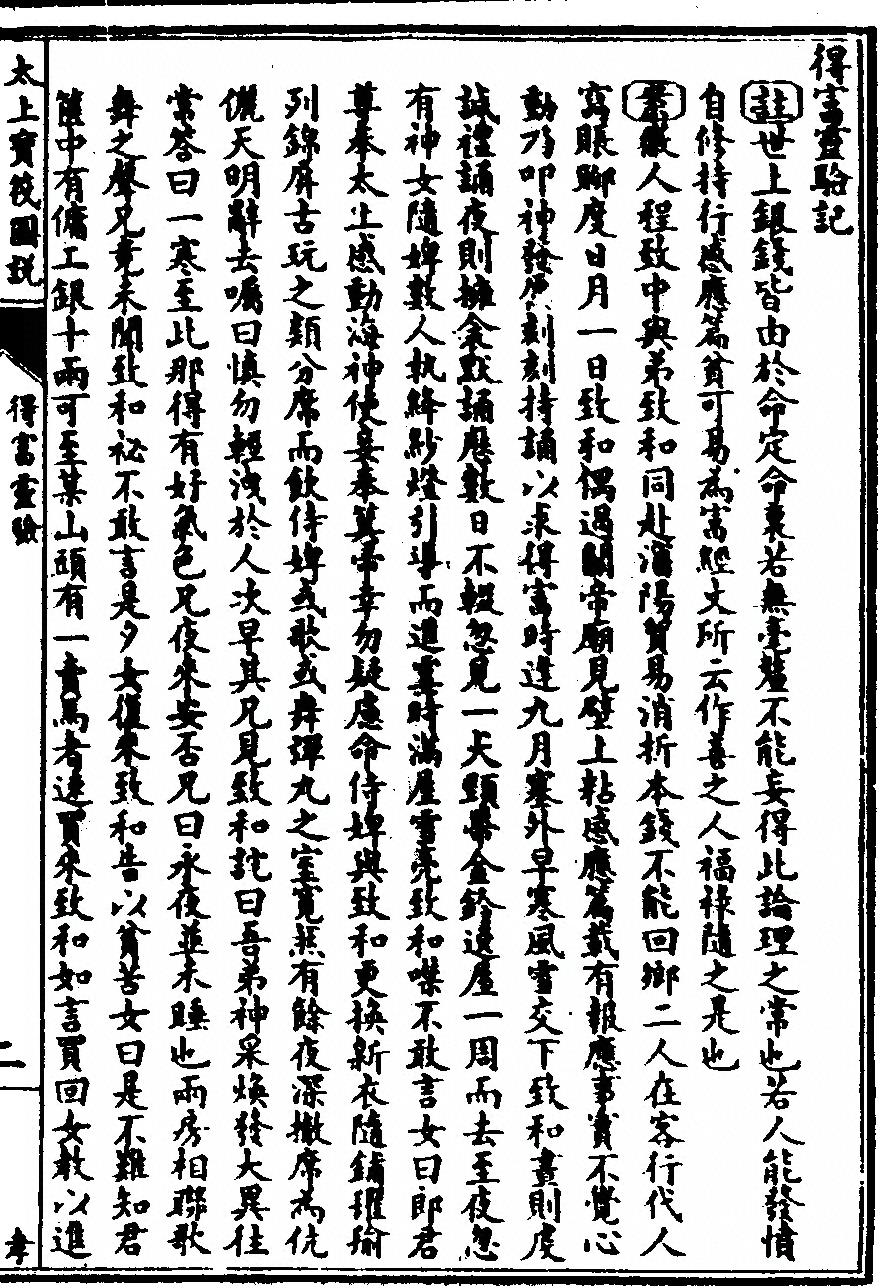 得富靈驗記
註世上銀錢皆由於命定命裏若無毫釐不能妄得此論理之常也若人能發憤
自修持行感應篇貧可易為富經文所云作善之人福祿隨之是也
案徽人程致中與弟致和同赴瀋陽貿易消折本錢不能回鄉二人在客行代人
寫賬聊度日月一日致和偶過關帝廟見壁上粘感應篇載有報應事實不覺心
動乃叩神發愿刻刻持誦以求得富時逢九月塞外早寒風雪交下致和晝則虔
誠禮誦夜則擁衾默誦應數日不輟忽見一犬頸帶金鈴遶屋一周而去至夜忽
有神女隨婢數人執絳紗燈引導而進霎時滿屋雪亮致和噤不敢言女曰郎君
尊奉太上感動海神使妾奉箕帚幸勿疑慮命侍婢與致和更換新衣隨鋪璀瑜
列錦屏古玩之類分席而飲侍婢或歌或舞彈丸之室寬然有餘夜深撤席為伉
儷天明辭去囑曰慎勿輕洩於人次早其兄見致和詫曰吾弟神采煥發大異往
常答曰一寒至此那得有好氣色兄夜來安否兄曰永夜並未睡也兩房相聯歌
舞之聲兄竟未聞致和祕不敢言是夕女復來致和告以貧苦女曰是不難知君
篋中有傭工銀十兩可至某山頭有一賣馬者速買來致和如言買回女教以進
太上寶筏圖説
得富靈驗
二
孝